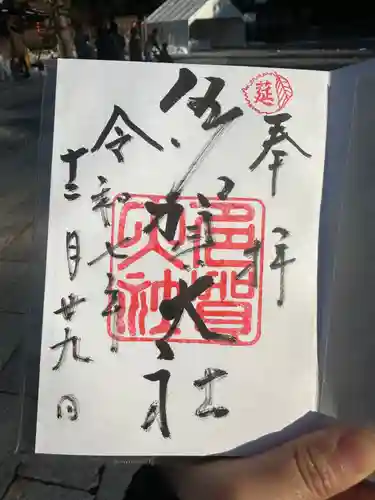 莚
奉拝
多賀大社
多賀大社
令和七年
十二月廿九日